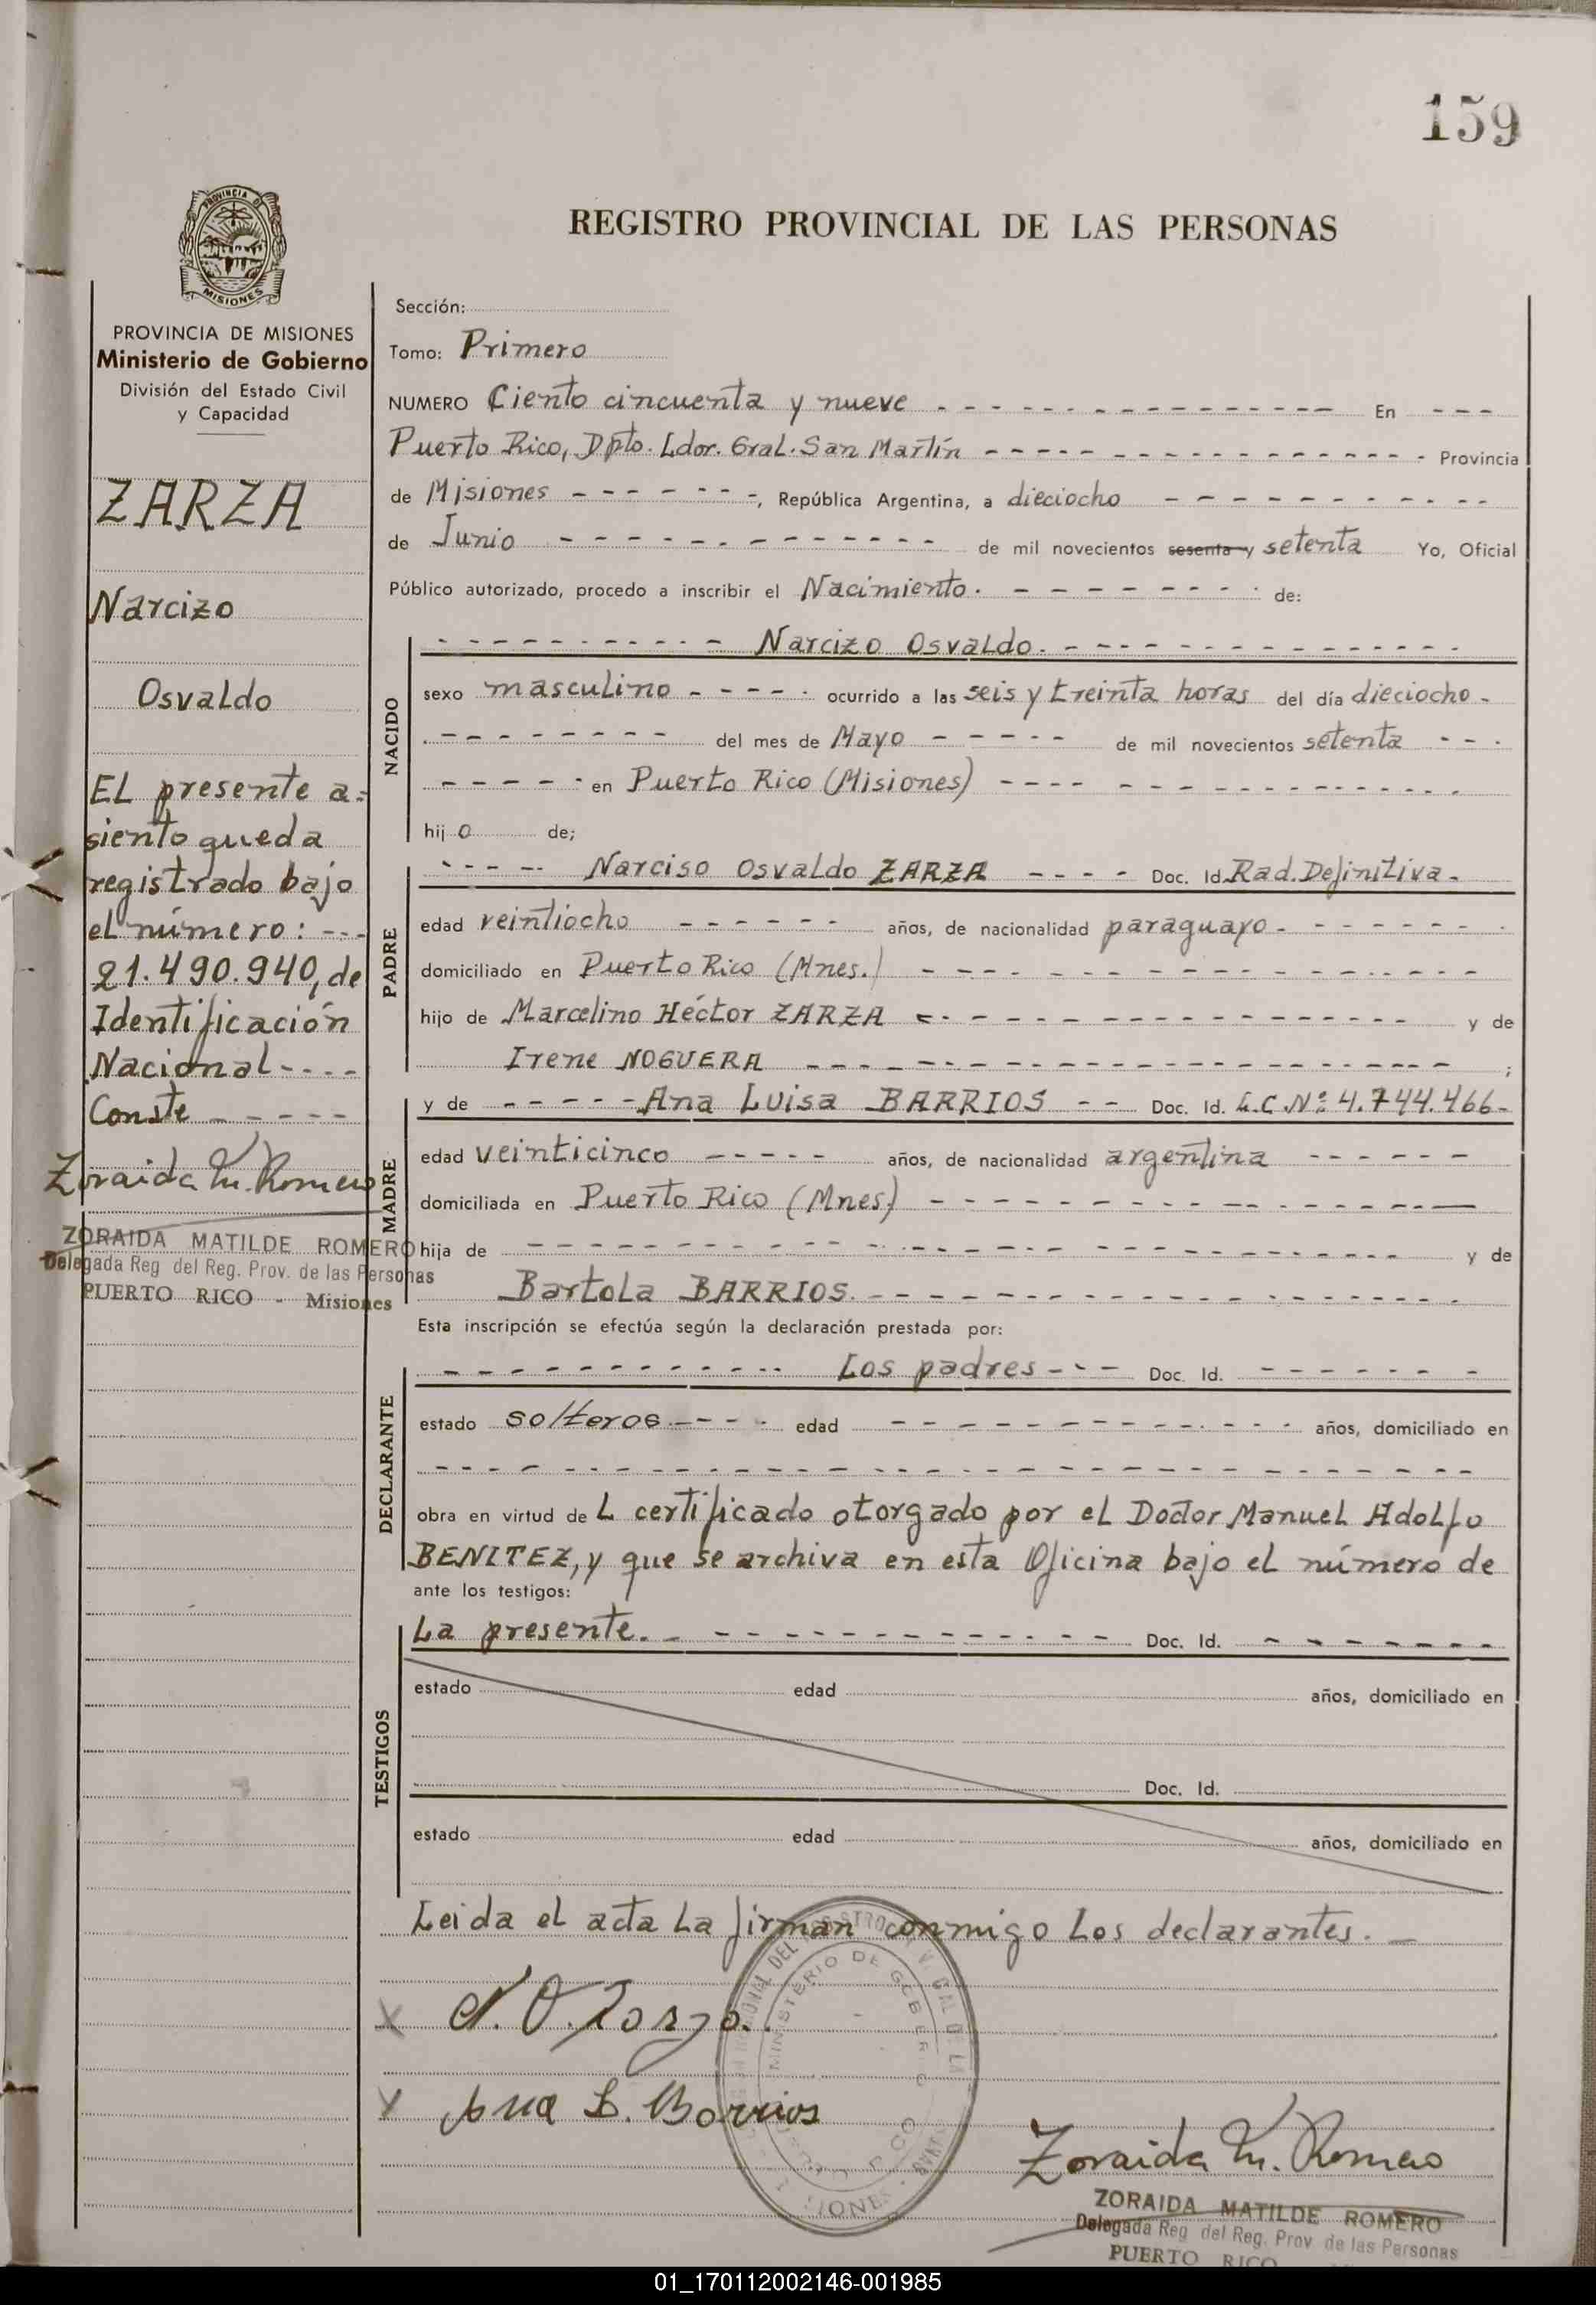 159
REGISTRO PROVINCIAL DE LAS PERSONAS
PROVINCIA
MISIONES
PROVINCIA DE MISIONES
Ministerio de Gobierno
División del Estado Civil
y Capacidad
ZARZA
Narcizo
Osvaldo
El presente a=
siento queda
registrado bajo
el número: ---
21.490.940, de
Identificación
Nacional----
Conste - - - - -
Zoraida M. Romero
ZORAIDA MATILDE ROMERO
Delegada Reg del Reg. Prov. de las Personas
PUERTO RICO - Misiones
Sección:
Tomo: Primero
NUMERO Ciento cincuenta y nueve - - - En - - -
Puerto Rico, Dpto. Ldor. Gral. San Martín - - - Provincia
de Misiones - - -, República Argentina, a dieciocho - - -
de Junio - - - de mil novecientos sesenta y setenta Yo, Oficial
Público autorizado, procedo a inscribir el Nacimiento. - - - de:
NACIDO
- - - Narcizo Osvaldo. - - -
sexo masculino - - - ocurrido a las seis y treinta horas del día dieciocho -
- - - del mes de Mayo - - - de mil novecientos setenta - - -
- - - en Puerto Rico (Misiones) - - -
hij o de;
PADRE
- - - Narciso Osvaldo ZARZA - - - Doc. Id. Rad. Definitiva -
edad veintiocho - - - años, de nacionalidad paraguayo - - -
domiciliado en Puerto Rico (Mnes.) - - -
hijo de Marcelino Héctor ZARZA - - - y de
Irene NOGUERA - - - ;
MADRE
y de - - - Ana Luisa BARRIOS - - Doc. Id. L.C.Nº: 4.744.466-
edad veinticinco - - - años, de nacionalidad argentina - - -
domiciliada en Puerto Rico (Mnes) - - -
hija de - - - y de
Bartola BARRIOS. - - -
Esta inscripción se efectúa según la declaración prestada por:
DECLARANTE
- - - Los padres - - - Doc. Id. - - -
estado solteros - - - edad - - - años, domiciliado en
- - -
obra en virtud de L certificado otorgado por el Doctor Manuel Adolfo
BENITEZ, y que se archiva en esta Oficina bajo el número de
ante los testigos:
TESTIGOS
La presente. - - - Doc. Id. - - -
estado edad años, domiciliado en
Doc. Id.
estado edad años, domiciliado en
Leida el acta la firman conmigo los declarantes. -
X N. O. Zarza.
X Ana L. Barrios
MINISTERIO DE GOBIERNO
Zoraida M. Romero
ZORAIDA MATILDE ROMERO
Delegada Reg del Reg. Prov de las Personas
PUERTO RICO
01_170112002146-001985